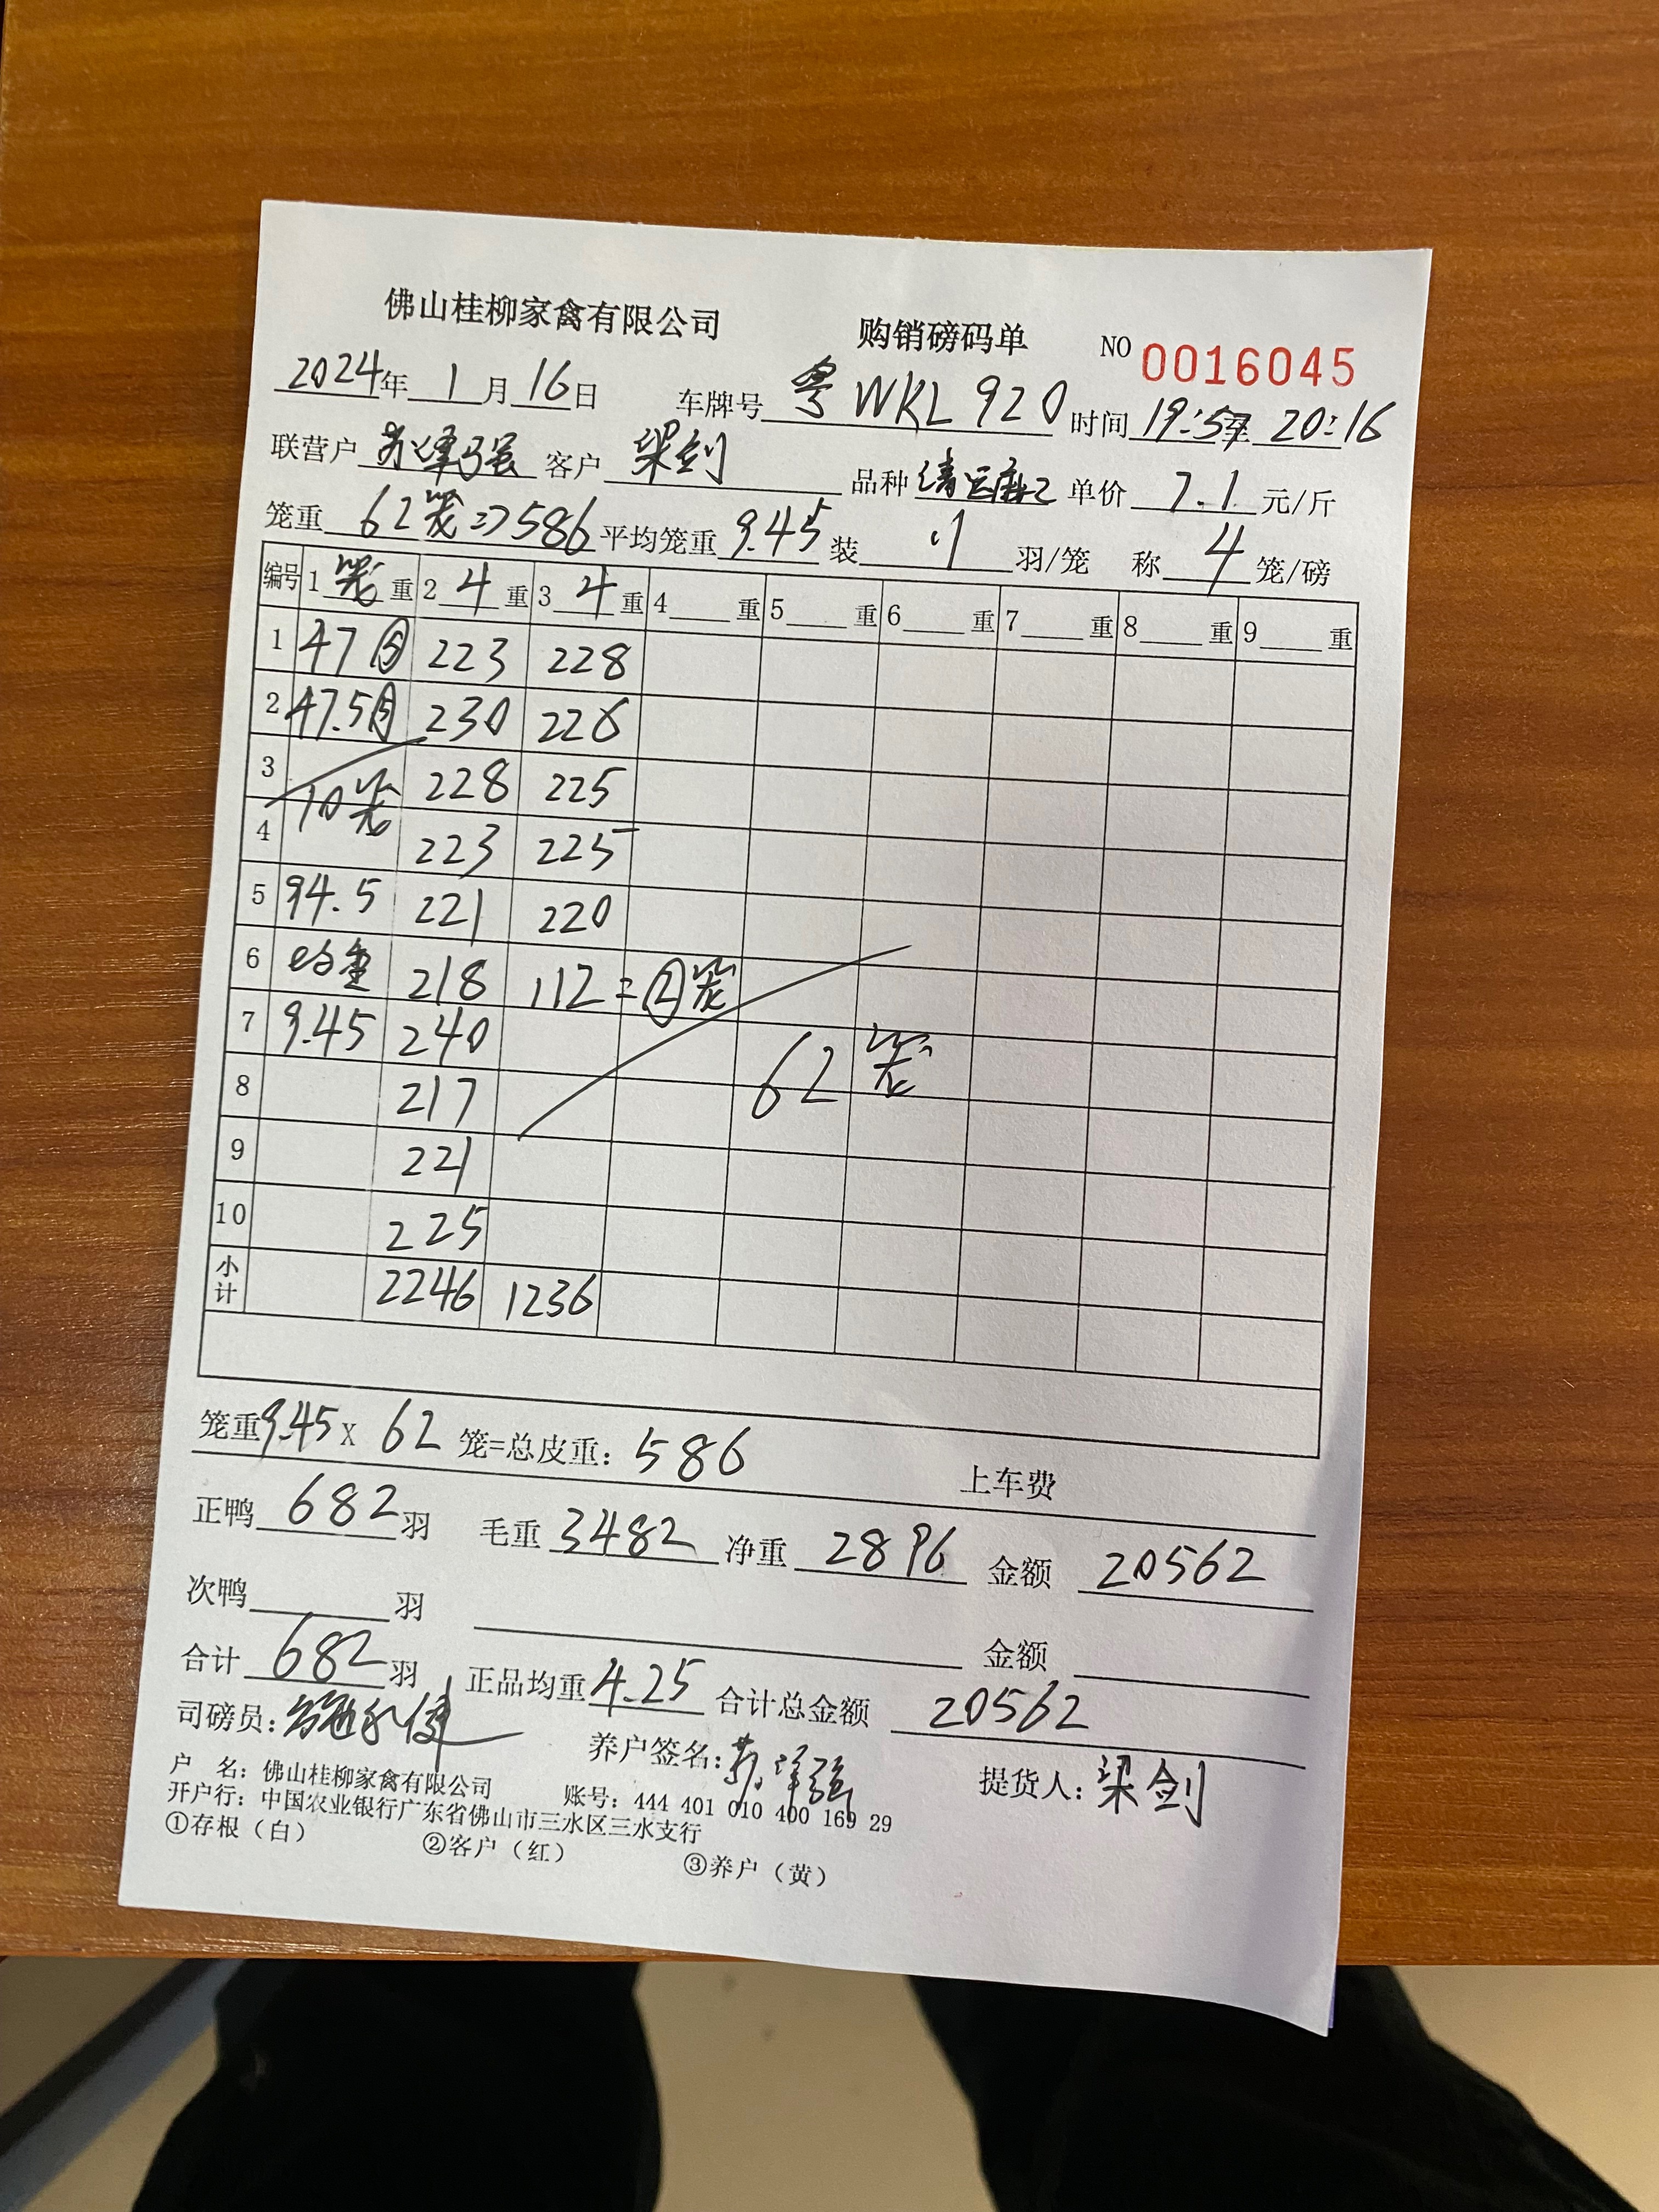 佛山桂柳家禽有限公司 购销磅码单 NO 0016045
2024年 1 月 16 日 车牌号 粤WKL 920 时间 19:57至 20:16
联营户 苏泽强 客户 梁剑 品种 清远麻 单价 7.1 元/斤
笼重 62笼=>586 平均笼重 9.45 装 11 羽/笼 称 4 笼/磅
编号 1 笼 重 2 4 重 3 4 重 4 重 5 重 6 重 7 重 8 重 9 重
1 47⑤ 223 228
2 47.5⑤ 230 226
3 228 225
10笼
4 223 225
5 94.5 221 220
6 均重 218 112=②笼
7 9.45 240 62笼
8 217
9 221
10 225
小计 2246 1236
笼重9.45X 62 笼=总皮重: 586 上车费
正鸭 682 羽 毛重 3482 净重 2896 金额 20562
次鸭 羽 金额
合计 682 羽 正品均重 4.25 合计总金额 20562
司磅员: 养户签名: 苏泽强 提货人: 梁剑
户 名: 佛山桂柳家禽有限公司 账号: 444 401 010 400 169 29
开户行: 中国农业银行广东省佛山市三水区三水支行
①存根（白） ②客户（红） ③养户（黄）